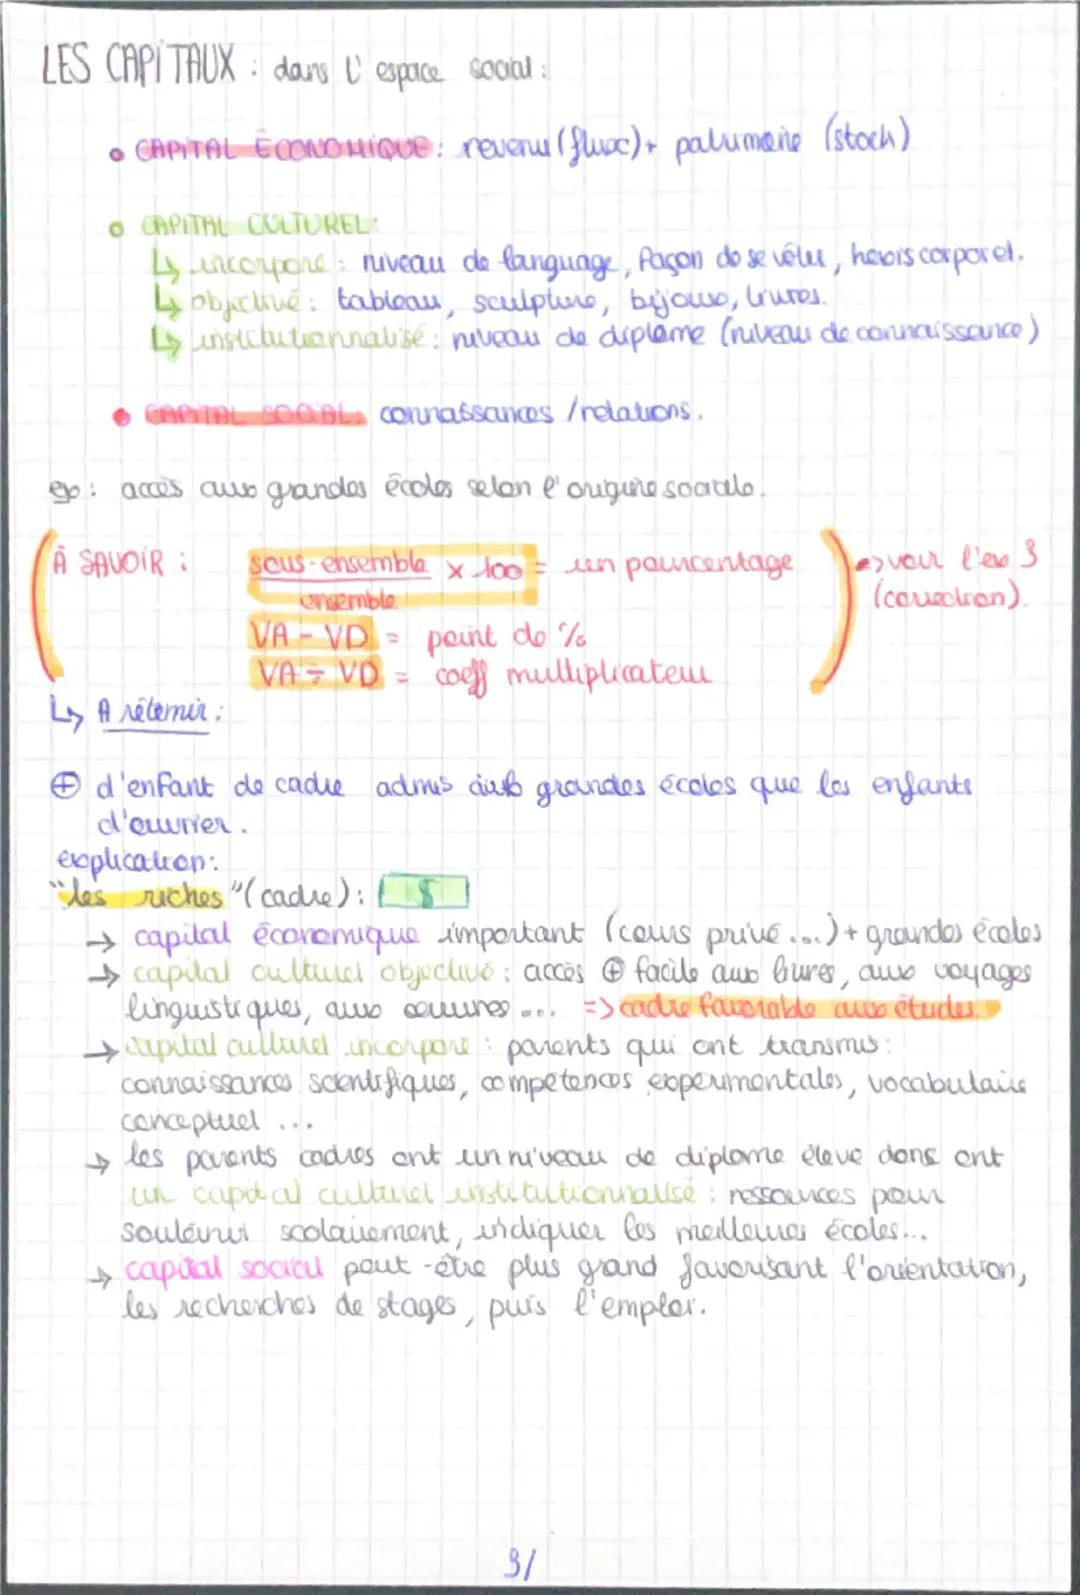 LES CAPITAUX : dans l'espace social :
• CAPITAL ÉCONOMIQUE : revenu (flux) + patrimoine (stock)
• CAPITAL CULTUREL :
↳ incorporé : niveau de language, façon de se vêtir, hexis corporel.
↳ objectivé : tableau, sculpture, bijoux, livres.
↳ institutionnalisé : niveau de diplôme (niveau de connaissance)
• CAPITAL SOCIAL : connaissances / relations.
ex : accès aux grandes écoles selon l'origine sociale.
À SAVOIR : sous-ensemble / ensemble x 100 = un pourcentage => voir l'ex 3 (correction).
VA - VD = point de %
VA ÷ VD = coeff multiplicateur
↳ A retenir :
⊕ d'enfant de cadre admis aux grandes écoles que les enfants
d'ouvrier.
explication :
"les riches" (cadre) : $
→ capital économique important (cours privé ...) + grandes écoles
→ capital culturel objectivé : accès ⊕ facile aux livres, aux voyages
linguistiques, aux oeuvres ... => cadre favorable aux études.
→ capital culturel incorporé : parents qui ont transmis :
connaissances scientifiques, compétences expérimentales, vocabulaire
conceptuel ...
→ les parents cadres ont un niveau de diplome élevé donc ont
un capital culturel institutionnalisé : ressources pour
soutenir scolairement, indiquer les meilleures écoles...
→ capital social peut-être plus grand favorisant l'orientation,
les recherches de stages, puis l'emploi.
3/